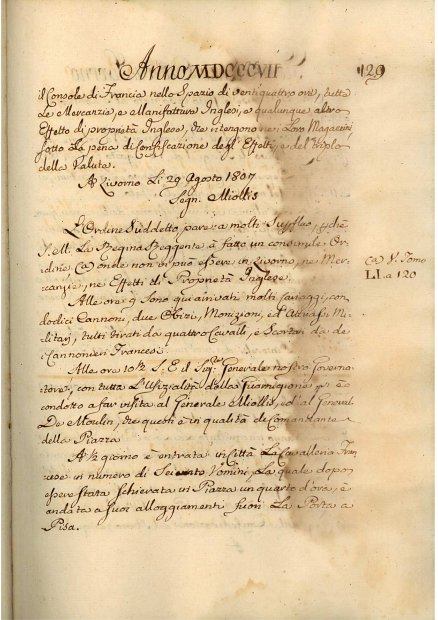 Anno MDCCCVII
129
il Console di Francia nello Spazio di ventiquattro ore, tutte
Le Mercanzie, e Manifatture Inglesi, e qualunque altro
Effetto di proprietà Inglese, che ritengono nei Loro Magazzini
sotto La pena di Confiscazione degl' Effetti, e del Triplo
della Valuta.
A Livorno Li 29 Agosto 1807
Segn. Miollis
L'Ordine Suddetto, pare a molti Superfluo, perchè
S. M. La Regina Reggente à fatto un consimile Or-
dine (a) onde non vi può essere in Livorno, ne Mer-
canzie, ne Effetti di Proprietà Inglese.
(a) V. Tomo
LI. a 120
Alle ore 9 Sono quì arrivati molti Carriaggi, con
dodici Cannoni, due Obizi, Monizioni, ed Attrassi Mi-
litari, tutti tirati da quattro Cavalli, e Scortati da de
Cannonieri Francesi.
Alle ore 10½ S. E. il Sigr. Generale nostro Governa-
tore, con tutta L'Ufizialità della Guarnigione si è
condotto a far visita al Generale Miollis, ed al General
De Moulin, che questi è in qualità di Comandante
della Piazza
A ½ giorno è entrata in Città La Cavalleria Fran-
cese in numero di Seicento Uomini, La quale dopo
essere stata Schierata in Piazza un quarto d'ora, è
andata a suoi alloggiamenti fuori La Porta a
Pisa.